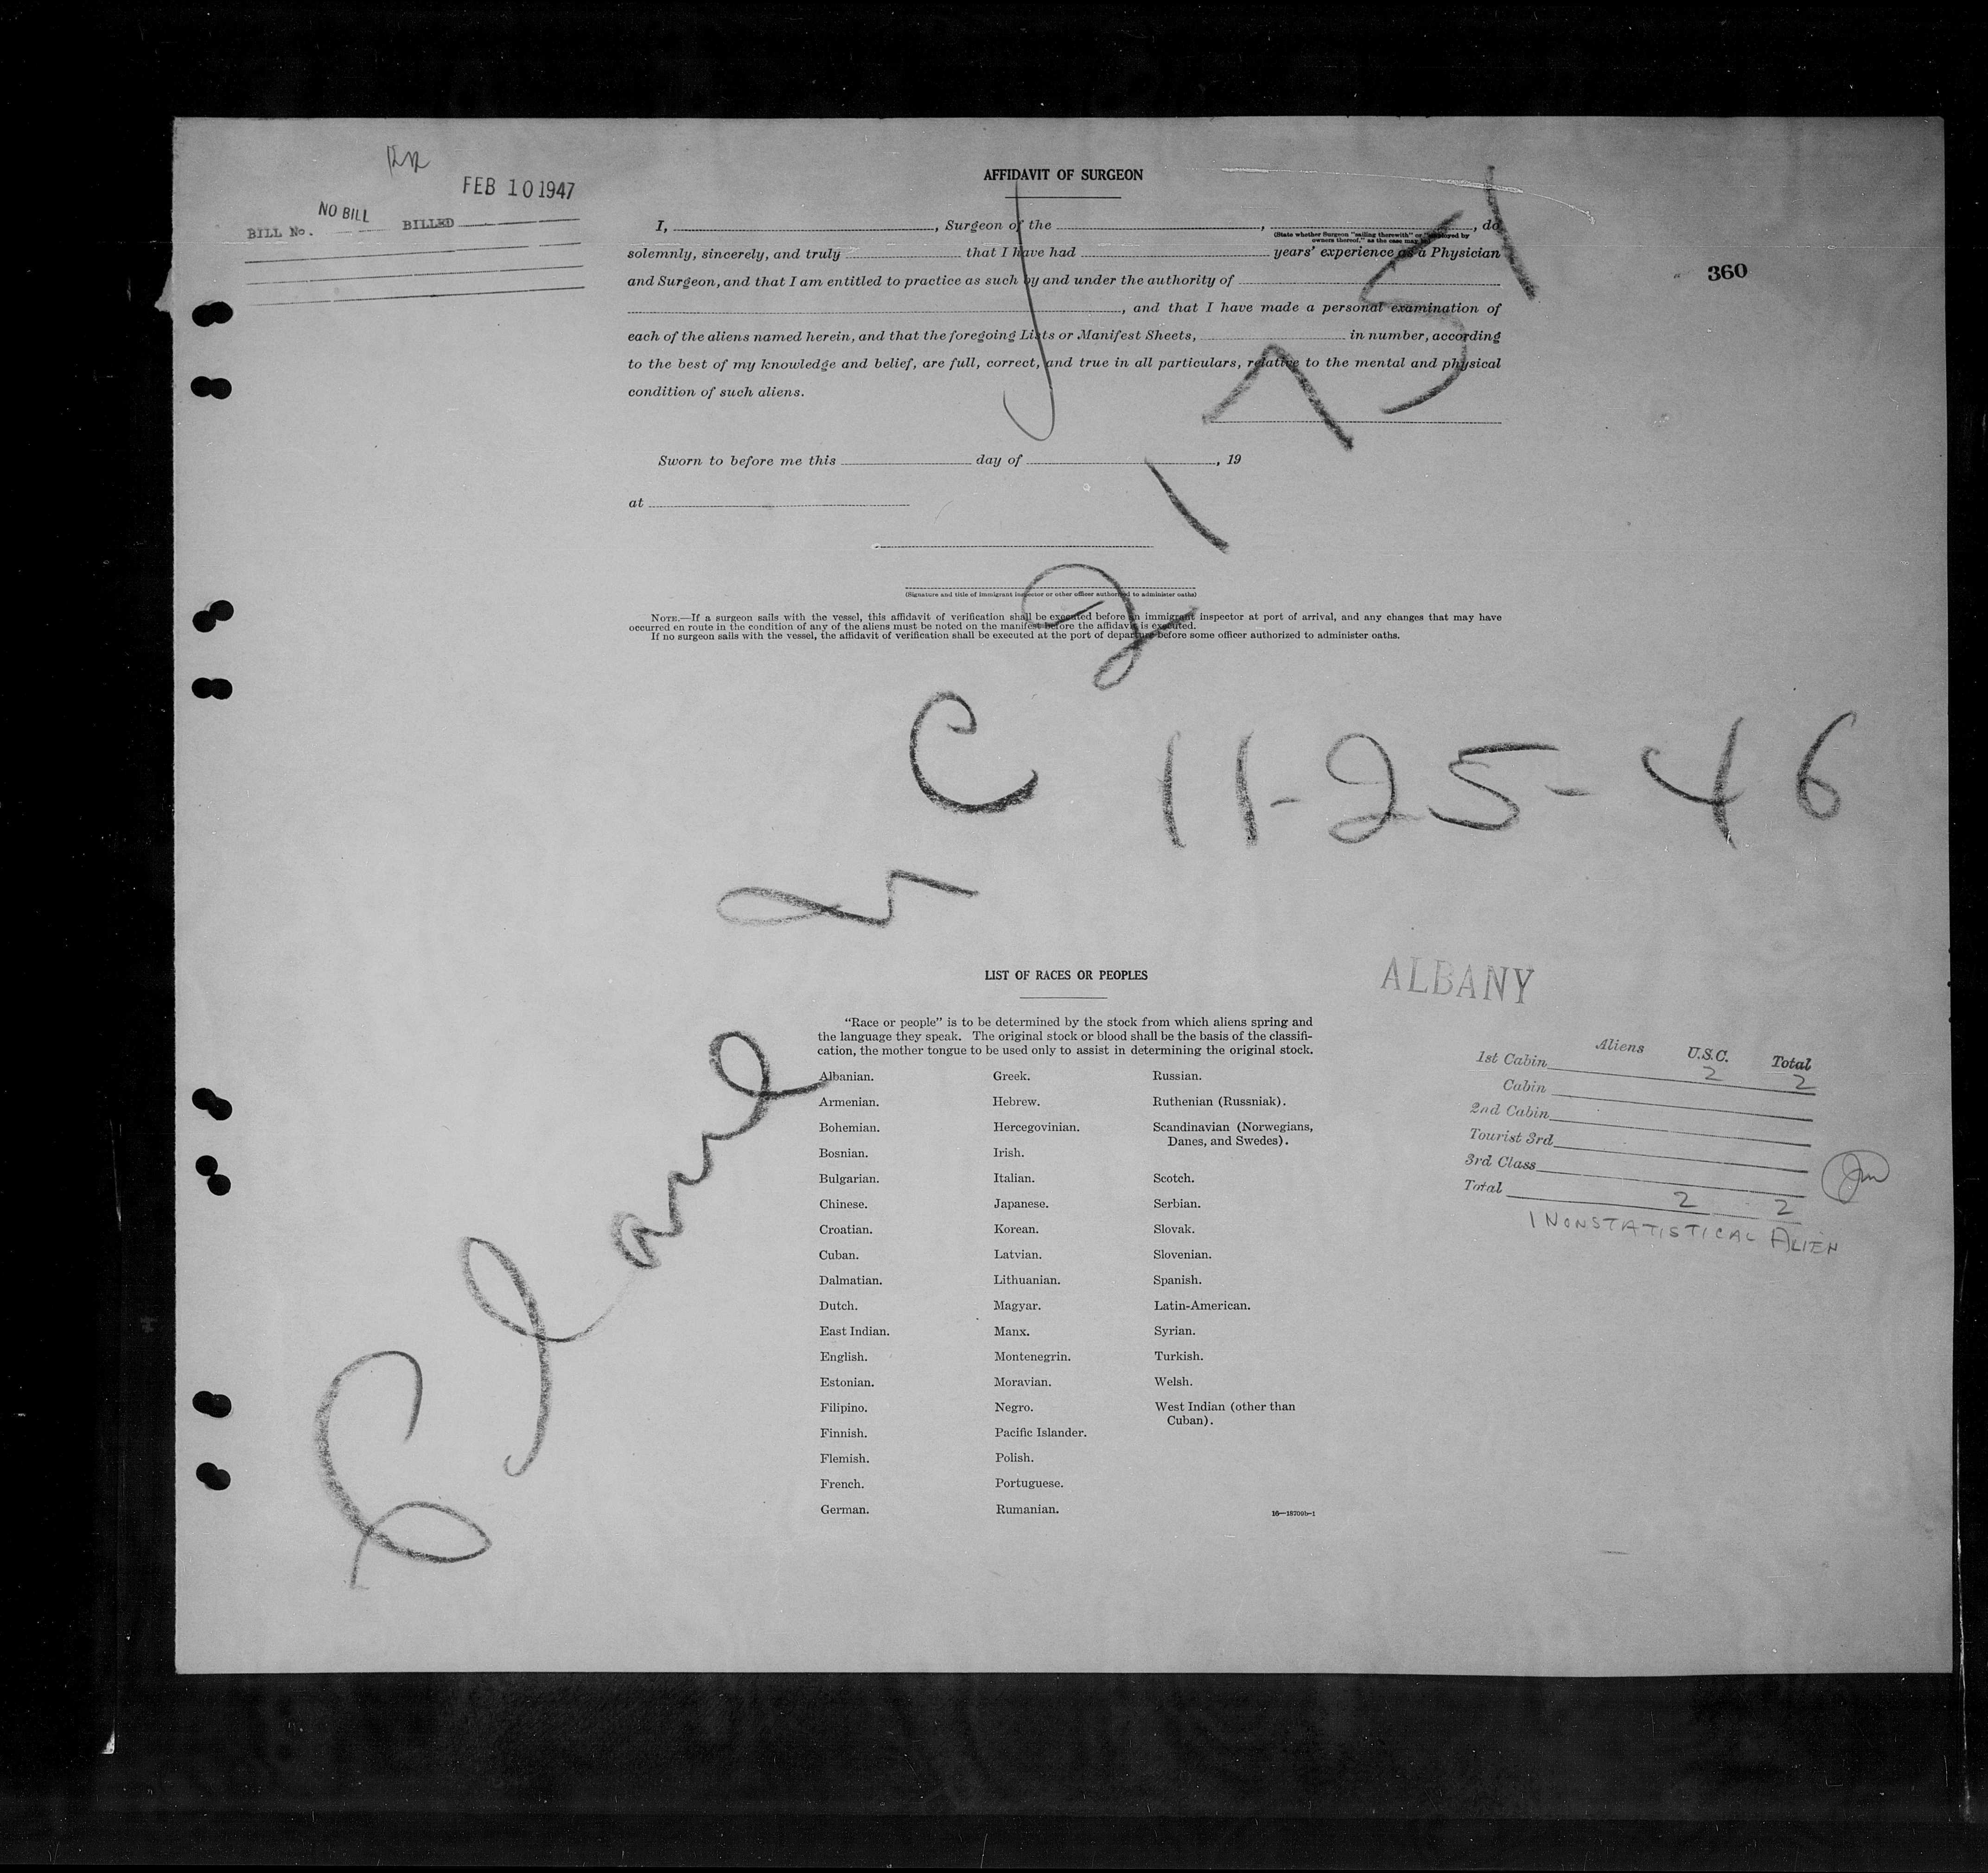 FEB 10 1947
NO BILL
BILL No. BILLED
AFFIDAVIT OF SURGEON
I, , Surgeon of the , , do
(State whether Surgeon "sailing therewith" or "employed by
owners thereof," as the case may be)
solemnly, sincerely, and truly that I have had years' experience as a Physician
and Surgeon, and that I am entitled to practice as such by and under the authority of
, and that I have made a personal examination of
each of the aliens named herein, and that the foregoing Lists or Manifest Sheets, in number, according
to the best of my knowledge and belief, are full, correct, and true in all particulars, relative to the mental and physical
condition of such aliens.
360
Sworn to before me this day of , 19
at
(Signature and title of immigrant inspector or other officer authorized to administer oaths)
NOTE.—If a surgeon sails with the vessel, this affidavit of verification shall be executed before an immigrant inspector at port of arrival, and any changes that may have
occurred en route in the condition of any of the aliens must be noted on the manifest before the affidavit is executed.
If no surgeon sails with the vessel, the affidavit of verification shall be executed at the port of departure before some officer authorized to administer oaths.
11-25-46
LIST OF RACES OR PEOPLES
"Race or people" is to be determined by the stock from which aliens spring and
the language they speak. The original stock or blood shall be the basis of the classifi-
cation, the mother tongue to be used only to assist in determining the original stock.
Albanian.
Armenian.
Bohemian.
Bosnian.
Bulgarian.
Chinese.
Croatian.
Cuban.
Dalmatian.
Dutch.
East Indian.
English.
Estonian.
Filipino.
Finnish.
Flemish.
French.
German.
Greek.
Hebrew.
Hercegovinian.
Irish.
Italian.
Japanese.
Korean.
Latvian.
Lithuanian.
Magyar.
Manx.
Montenegrin.
Moravian.
Negro.
Pacific Islander.
Polish.
Portuguese.
Rumanian.
Russian.
Ruthenian (Russniak).
Scandinavian (Norwegians,
Danes, and Swedes).
Scotch.
Serbian.
Slovak.
Slovenian.
Spanish.
Latin-American.
Syrian.
Turkish.
Welsh.
West Indian (other than
Cuban).
16—18709b-1
ALBANY
Aliens U.S.C. Total
1st Cabin 2 2
Cabin
2nd Cabin
Tourist 3rd
3rd Class
Total 2 2
1 NONSTATISTICAL ALIEN